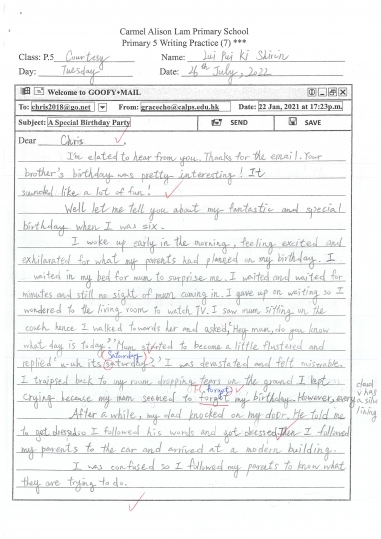 Carmel Alison Lam Primary School
Primary 5 Writing Practice (7) ***
Class: P.5 Courtesy Name: Lui Pui Ki Shirin
Day: Tuesday Date: 26th July, 2022
Welcome to GOOFY*MAIL
To: chris2018@go.net From: gracecho@calps.edu.hk Date: 22 Jan, 2021 at 17:23p.m.
Subject: A Special Birthday Party SEND SAVE
Dear Chris,
I'm elated to hear from you. Thanks for the email. Your
brother's birthday was pretty interesting! It
sounded like a lot of fun!
Well let me tell you about my fantastic and special
birthday when I was six.
I woke up early in the morning, feeling excited and
exhilarated for what my parents had planned on my birthday. I
waited in my bed for mum to surprise me. I waited and waited for
minutes and still no sight of mum coming in. I gave up on waiting so I
wondered to the living room to watch TV. I saw mum sitting on the
couch hence I walked towards her and asked, 'Hey mum, do you know
what day is today?' Mum started to become a little flustered and
Saturday
replied 'u-uh its saturday?' I was devastated and felt miserable.
I traipsed back to my room dropping tears on the ground I kept
forgot
crying because my mum seemed to forgot my birthday. However, every
cloud
has
a silver
lining
After a while, my dad knocked on my door. He told me
to get dressed so I followed his words and got dressed. Then I followed
my parents to the car and arrived at a modern building.
I was confused so I followed my parents to know what
they are trying to do.